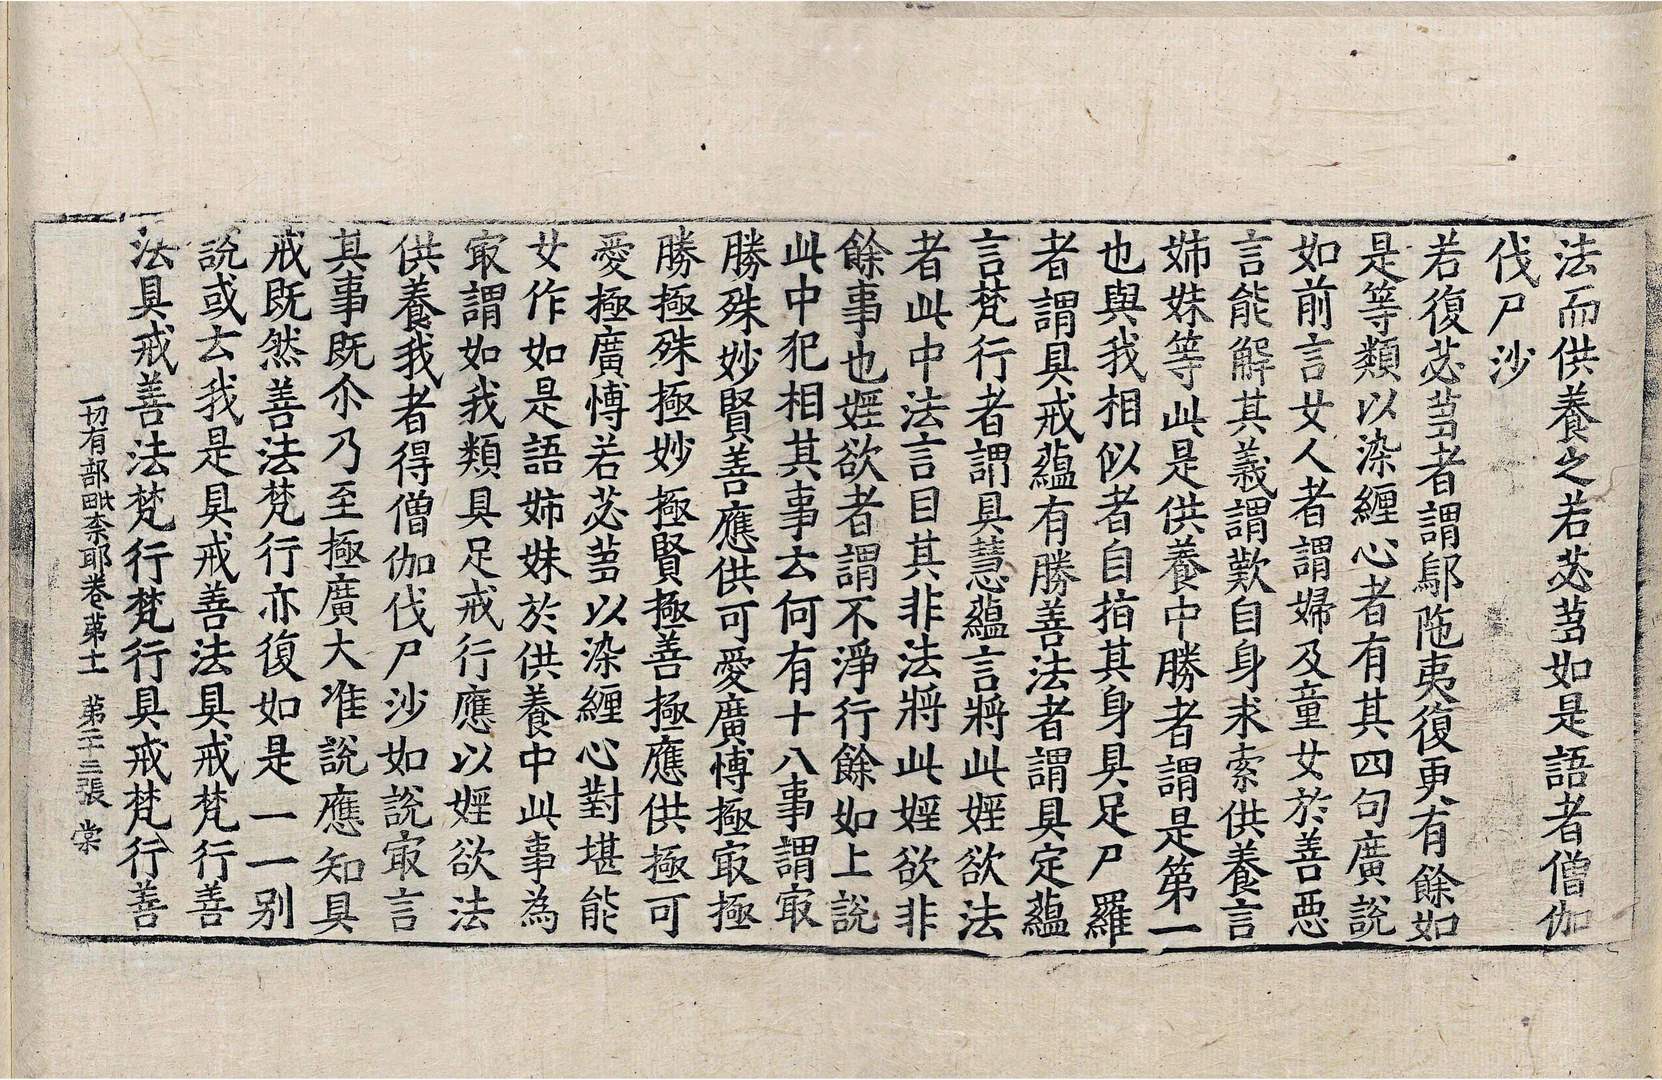 法而供養之若苾芻如是語者僧伽
伐尸沙
若復苾芻者謂鄔陁夷復更有餘如
是等類以染纏心者有其四句廣說
如前言女人者謂婦及童女於善惡
言能解其義謂歎自身求索供養言
姊妹等此是供養中勝者謂是第一
也與我相似者自指其身具足尸羅
者謂具戒蘊有勝善法者謂具定蘊
言梵行者謂具慧蘊言將此婬欲法
者此中法言目其非法將此婬欲非
餘事也婬欲者謂不淨行餘如上說
此中犯相其事去何有十八事謂㝡
勝殊妙賢善應供可愛廣博極㝡極
勝極殊極妙極賢極善極應供極可
愛極廣慱若苾芻以染纏心對堪能
女作如是語姊妹於供養中此事為
㝡謂如我類具足戒行應以婬欲法
供養我者得僧伽伐尸沙如說㝡言
其事既尒乃至極廣大准說應知具
戒既然善法梵行亦復如是一一別
說或去我是具戒善法具戒梵行善
法具戒善法梵行梵行具戒梵行善
一切有部毗奈耶卷第十一 第二十三張 棠